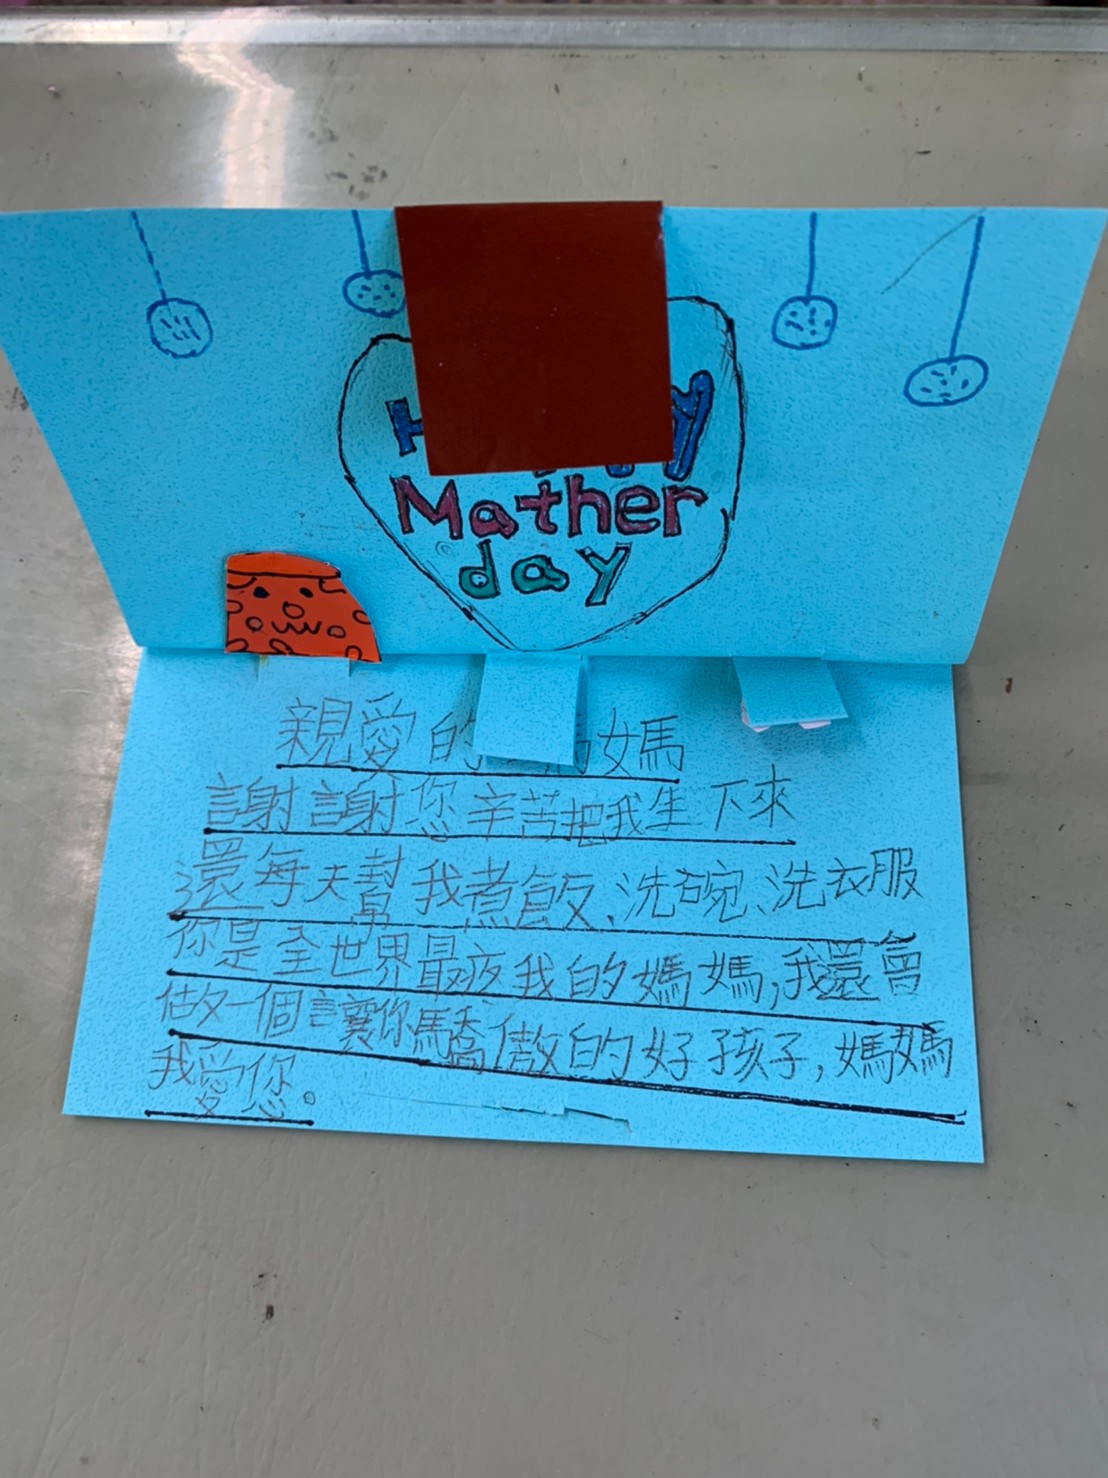 Happy
Mather
day
親愛的媽媽
謝謝您辛苦把我生下來
還每天幫我煮飯、洗碗、洗衣服
你是全世界最疼我的媽媽,我還會
做一個讓你驕傲的好孩子,媽媽
我愛您。